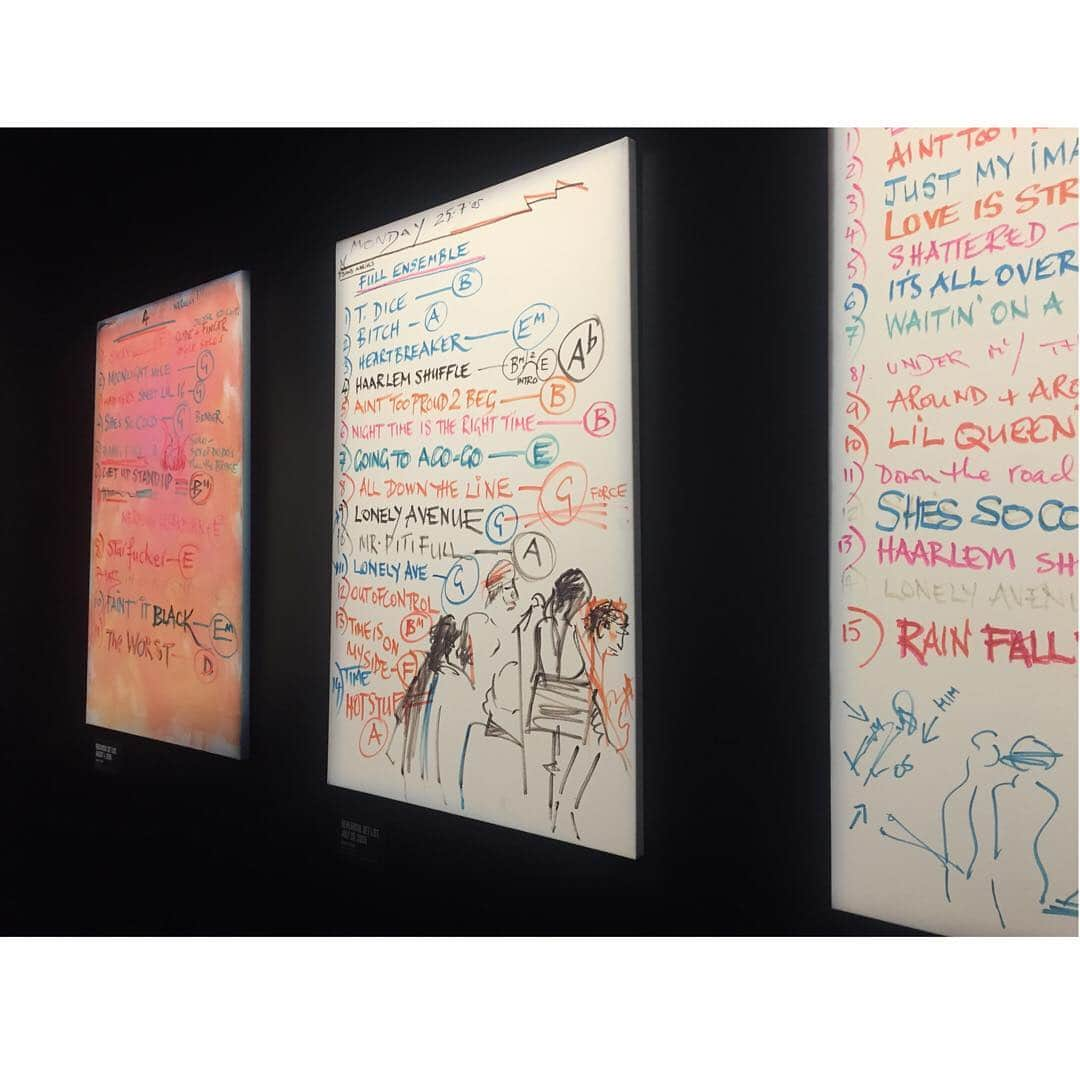 4
2) MOONLIGHT MILE — G
SWEET LIL 16 — G
4) SHE'S SO COLD — G
GET UP STAND UP = BM
8) Starfucker — E
10) PAINT IT BLACK — EM
THE WORST — D
REHEARSAL SET LIST,
MONDAY 25·7·05
FULL ENSEMBLE
1) T. DICE — B
2) BITCH — A
3) HEARTBREAKER — EM
4) HAARLEM SHUFFLE — BM/2 E INTRO Ab
5) AINT TOO PROUD 2 BEG — B
6) NIGHT TIME IS THE RIGHT TIME — B
7) GOING TO A GO-GO — E
8) ALL DOWN THE LINE — G FORCE
9) LONELY AVENUE G
10) MR. PITIFULL — A
11) LONELY AVE — G
12) OUT OF CONTROL BM
13) TIME IS ON
MY SIDE — F
14) TIME
HOT STUF
A
REHEARSAL SET LIST,
JULY 25, 2005
1)
2) AINT TOO
3) JUST MY IMA
4) LOVE IS STR
5) SHATTERED —
6) ITS ALL OVER
7) WAITIN' ON A
8) UNDER
9) AROUND + ARO
10) LIL QUEEN
11) Down the road
12) SHES SO CO
13) HAARLEM SH
LONELY AVENU
15) RAIN FALL
HIM